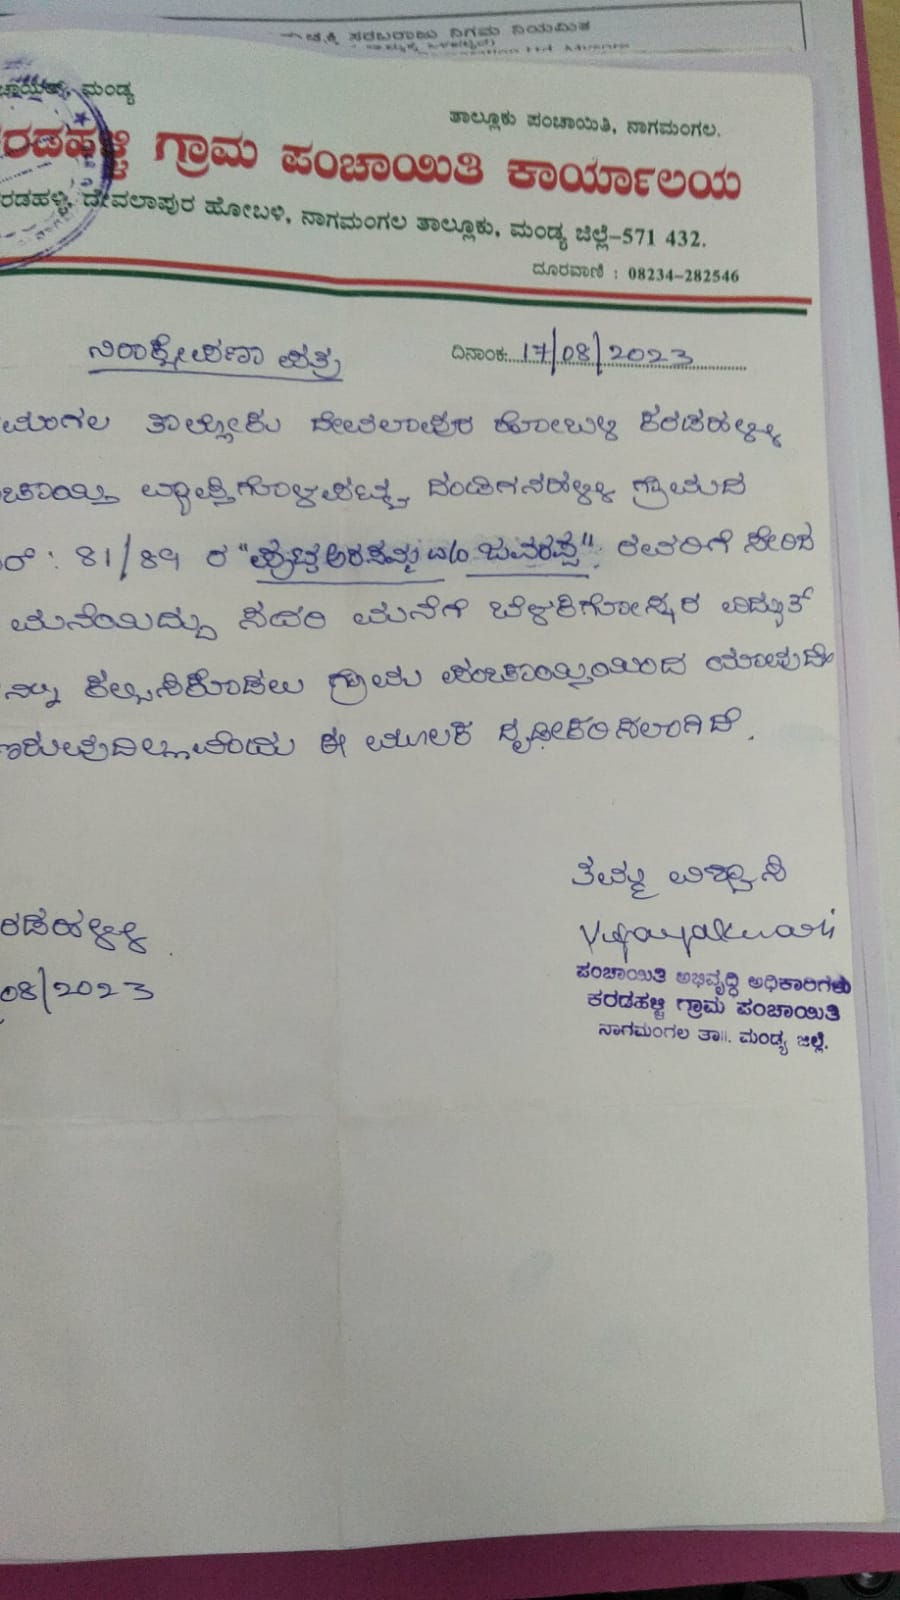 ಚ.ಕ್ಕಿ ಸರಬರಾಜು ನಿಗಮ ನಿಯಮಿತ
ಮಂಡ್ಯ
ತಾಲ್ಲೂಕು ಪಂಚಾಯಿತಿ, ನಾಗಮಂಗಲ.
ರಡಹಳ್ಳಿ ಗ್ರಾಮ ಪಂಚಾಯಿತಿ ಕಾರ್ಯಾಲಯ
ರಡಹಳ್ಳಿ, ದೇವಲಾಪುರ ಹೋಬಳಿ, ನಾಗಮಂಗಲ ತಾಲ್ಲೂಕು, ಮಂಡ್ಯ ಜಿಲ್ಲೆ-571 432.
ದೂರವಾಣಿ : 08234-282546
ನಿರಾಕ್ಷೇಪಣಾ ಪತ್ರ
ದಿನಾಂಕ: 17/08/2023
ಮಂಗಲ ತಾಲ್ಲೋಕು ದೇವಲಾಪುರ ಹೋಬಳಿ ಕರಡಹಳ್ಳಿ
ಚಾಯ್ತಿ ವ್ಯಾಪ್ತಿಗೊಳಪಟ್ಟ ದಂಡಿಗನಹಳ್ಳಿ ಗ್ರಾಮದ
ರ್ : 81/89 ರ "ಪುಟ್ಟಅರಸಮ್ಮ w/o ಜವರಪ್ಪ" ರವರಿಗೆ ಸೇರಿದ
ಮನೆಯಿದ್ದು ಸದರಿ ಮನೆಗೆ ಬೆಳಕಿಗೋಸ್ಕರ ವಿದ್ಯುತ್
ನ್ನು ಕಲ್ಪಿಸಿಕೊಡಲು ಗ್ರಾಮ ಪಂಚಾಯ್ತಿಯಿಂದ ಯಾವುದೇ
ಇರುವುದಿಲ್ಲವೆಂದು ಈ ಮೂಲಕ ದೃಢೀಕರಿಸಲಾಗಿದೆ.
ತಮ್ಮ ವಿಶ್ವಾಸಿ
ರಡಹಳ್ಳಿ
Vijayakumari
08/2023
ಪಂಚಾಯಿತಿ ಅಭಿವೃದ್ಧಿ ಅಧಿಕಾರಿಗಳು
ಕರಡಹಳ್ಳಿ ಗ್ರಾಮ ಪಂಚಾಯಿತಿ
ನಾಗಮಂಗಲ ತಾ॥. ಮಂಡ್ಯ ಜಿಲ್ಲೆ.